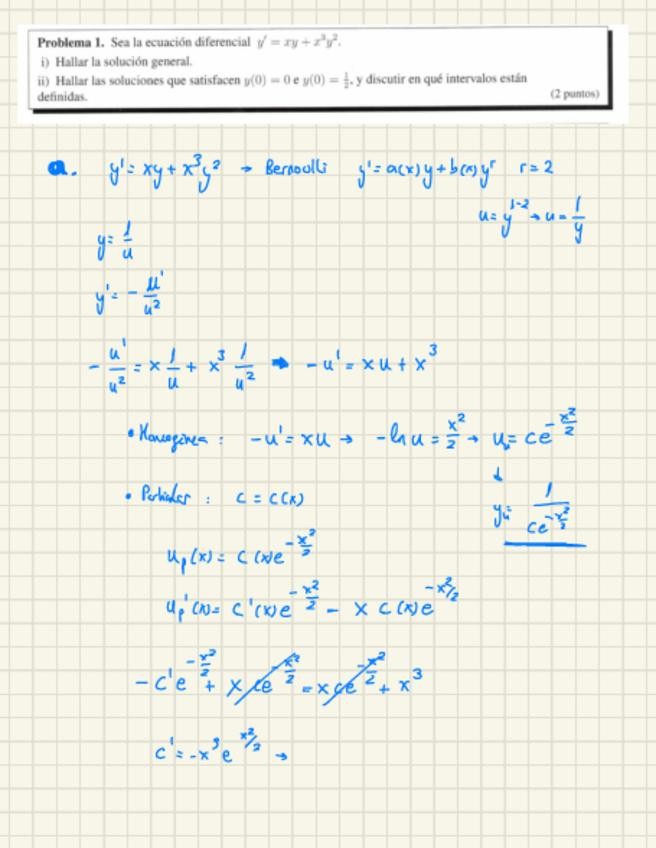 Problema 1. Sea la ecuación diferencial y' = xy + x³y².
i) Hallar la solución general.
ii) Hallar las soluciones que satisfacen y(0) = 0 e y(0) = 1/2, y discutir en qué intervalos están
definidas. (2 puntos)
a. y' = xy + x³y² → Bernoulli y' = a(x)y + b(x)y^r r = 2
u = y^(1-2) → u = 1/y
y = 1/u
y' = - u'/u²
- u'/u² = x 1/u + x³ 1/u² ➡ -u' = xu + x³
• Homogénea : -u' = xu → -ln u = x²/2 → u = ce^(-x²/2)
↓
• Particular : c = c(x) y = 1/(ce^(-x²/2))
u_p(x) = c(x)e^(-x²/2)
u_p'(x) = c'(x)e^(-x²/2) - x c(x)e^(-x²/2)
-c'e^(-x²/2) + x ce^(-x²/2) = x ce^(-x²/2) + x³
c' = -x³e^(x²/2) →